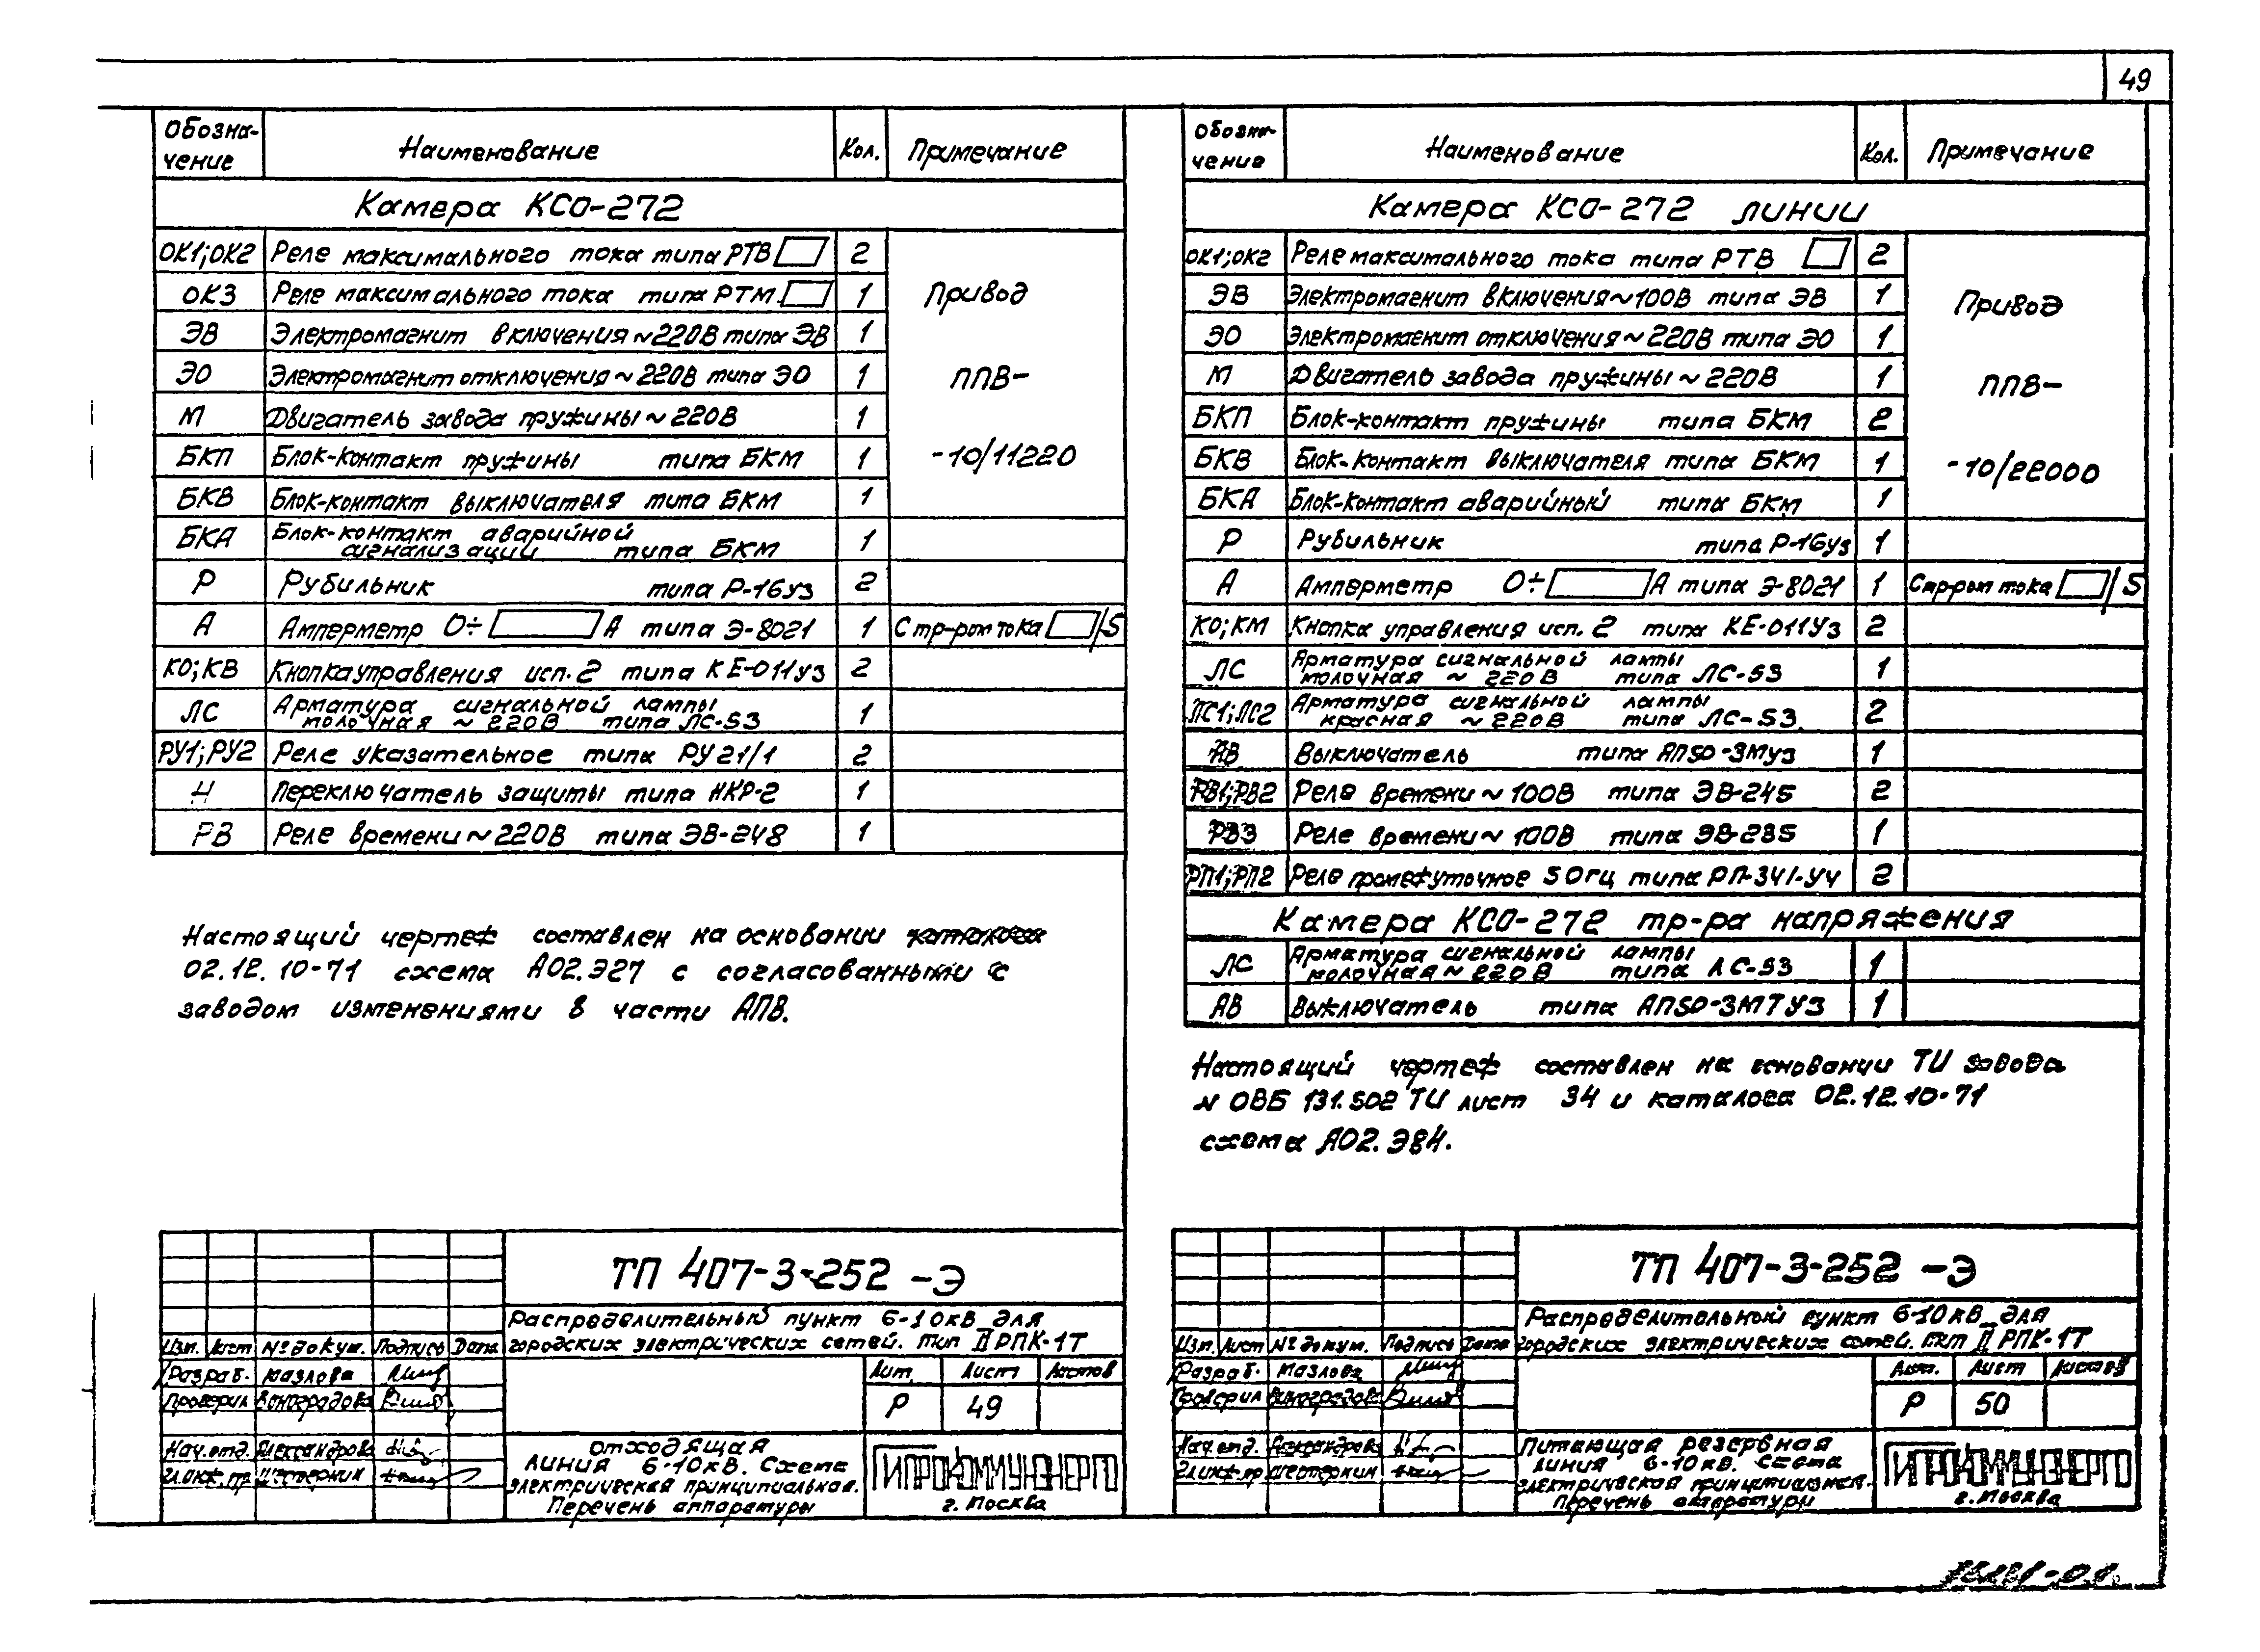 49
Обозна-
чение
Наименование
Кол.
Примечание
Камера КСО-272
ОК1;ОК2 Реле максимального тока типа РТВ 2
ОК3 Реле максимального тока типа РТМ 1
ЭВ Электромагнит включения ~220В типа ЭВ 1
ЭО Электромагнит отключения ~ 220В типа ЭО 1
М Двигатель завода пружины ~ 220В 1
БКП Блок-контакт пружины типа БКМ 1
БКВ Блок-контакт выключателя типа БКМ 1
Привод
ППВ-
-10/11220
БКА Блок-контакт аварийной
сигнализации типа БКМ 1
Р Рубильник типа Р-16У3 2
А Амперметр 0÷ А типа Э-8021 1 Стр-рот тока /5
КО;КВ Кнопка управления исп. 2 типа КЕ-011У3 2
ЛС Арматура сигнальной лампы
молочная ~ 220В типа ЛС-53 1
РУ1;РУ2 Реле указательное типа РУ21/1 2
Н Переключатель защиты типа НКР-2 1
РВ Реле времени ~ 220В типа ЭВ-248 1
Настоящий чертеж составлен на основании каталога
02.12.10-71 схема А02.Э27 с согласованными с
заводом изменениями в части АПВ.
ТП 407-3-252 -Э
Распределительный пункт 6-10кВ для
городских электрических сетей. Тип II РПК-1Т
Изм. Лист № докум. Подпись Дата
Разраб. Мазлова
Проверил Виноградова
Нач. отд. Александрова
Гл. инж. пр. Шестернин
Лит. Лист Листов
Р 49
отходящая
линия 6-10кВ. Схема
электрическая принципиальная.
Перечень аппаратуры
ГИПРОКОММУНЭНЕРГО
г. Москва
Обозна-
чение
Наименование
Кол.
Примечание
Камера КСО-272 линии
ОК1;ОК2 Реле максимального тока типа РТВ 2
ЭВ Электромагнит включения ~100В типа ЭВ 1
ЭО Электромагнит отключения ~ 220В типа ЭО 1
М Двигатель завода пружины ~ 220В 1
БКП Блок-контакт пружины типа БКМ 2
БКВ Блок-контакт выключателя типа БКМ 1
БКА Блок-контакт аварийный типа БКМ 1
Привод
ППВ-
-10/22000
Р Рубильник типа Р-16У3 1
А Амперметр 0÷ А типа Э-8021 1 Стр-рот тока /5
КО;КМ Кнопка управления исп. 2 типа КЕ-011У3 2
ЛС Арматура сигнальной лампы
молочная ~ 220В типа ЛС-53 1
ЛС1;ЛС2 Арматура сигнальной лампы
красная ~ 220В типа ЛС-53. 2
АВ Выключатель типа АП50-3МУ3 1
РВ1;РВ2 Реле времени ~ 100В типа ЭВ-245 2
РВ3 Реле времени ~ 100В типа ЭВ-235 1
РП1;РП2 Реле промежуточное 50гц типа РП-341-У4 2
Камера КСО-272 тр-ра напряжения
ЛС Арматура сигнальной лампы
молочная ~ 220В типа ЛС-53 1
АВ Выключатель типа АП50-3МТУ3 1
Настоящий чертеж составлен на основании ТИ завода
N ОВБ 131.502 ТИ лист 34 и каталога 02.12.10-71
схема А02.Э84.
ТП 407-3-252 -Э
Распределительной пункт 6-10кВ для
городских электрических сетей. тип II РПК-1Т
Изм. Лист № докум. Подпись Дата
Разраб. Мазлова
Проверил Виноградова
Нач. отд. Александрова
Гл. инж. пр. Шестернин
Лит. Лист Листов
Р 50
Питающая резервная
линия 6-10кВ. Схема
электрическая принципиальная.
Перечень аппаратуры
ГИПРОКОММУНЭНЕРГО
г. Москва